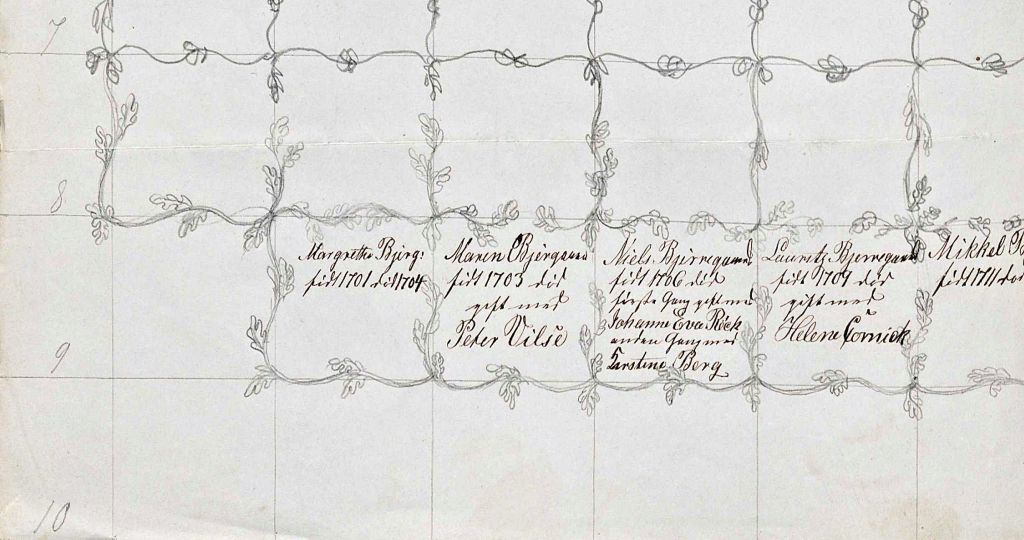 7
8
Margrethe Bjerg:
født 1701 död 1704
Maren Bjergaard
født 1703 död
gift med
Peter Vilse
Niels Bjerregaard
født 1706 död
første Gang gift med
Johanne Eva Röek
anden Gang med
Kirstene Berg
Lauritz Bjerregaard
født 1707 död
gift med
Helene Cornick
Mikkel
født 1711
9
10